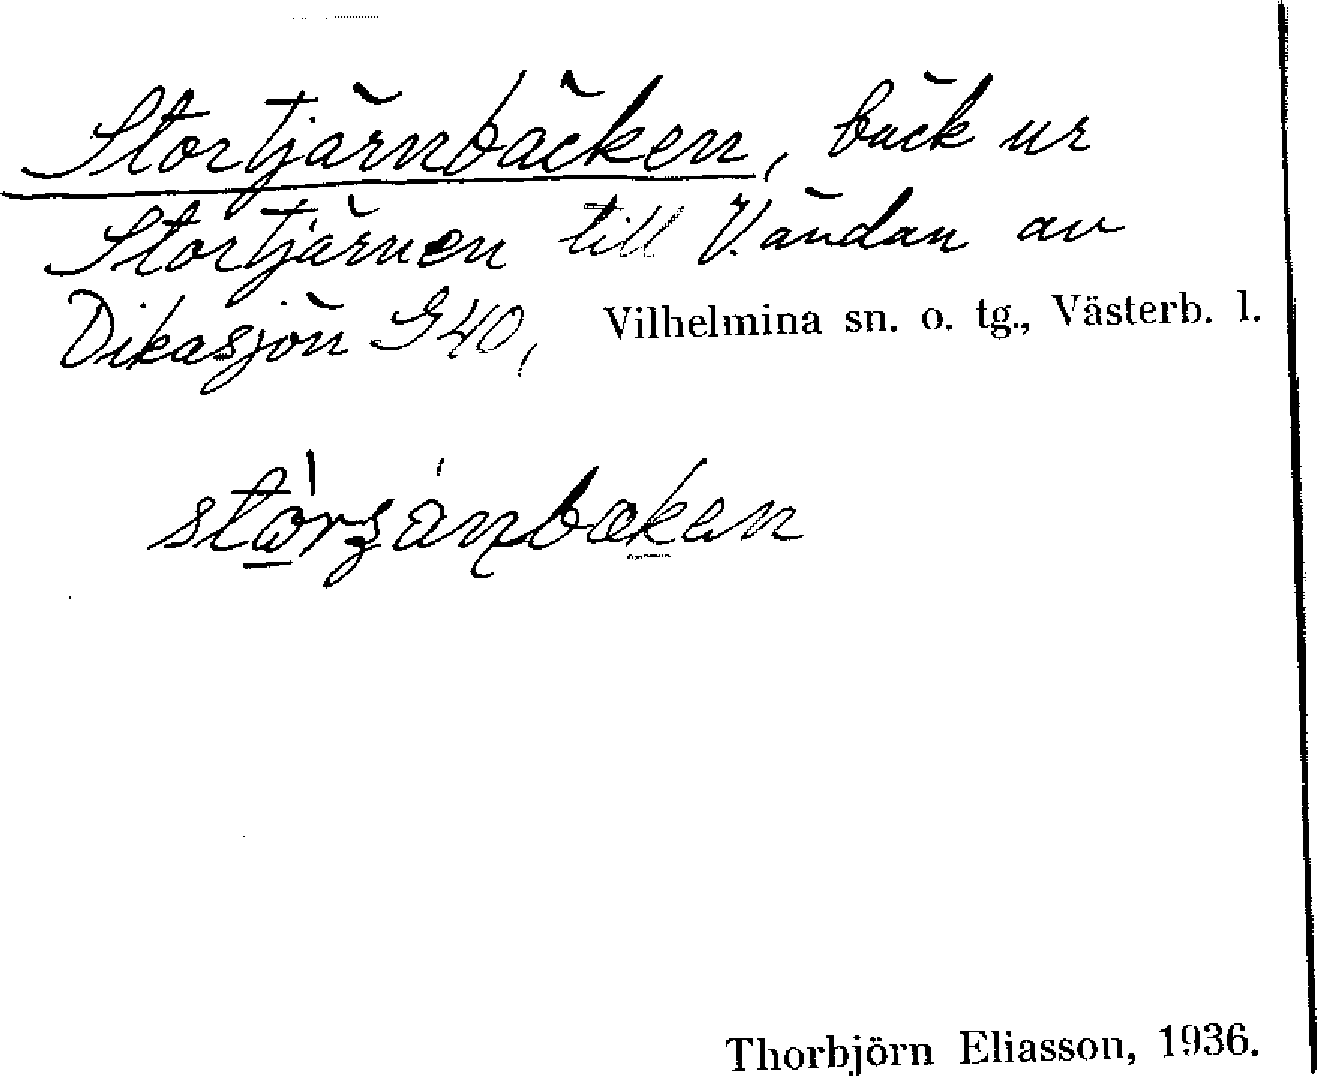 Stortjärnbäcken, bäck ur
Stortjärnen till V. ändan av
Dikasjön G40, Vilhelmina sn. o. tg., Västerb. l.
Thorbjörn Eliasson, 1936.